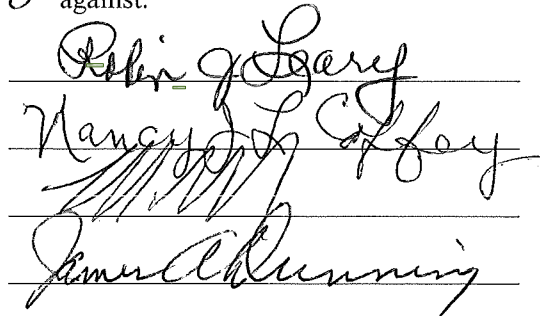 against.
Robin J Leary
Nancy J L Coffey
James A Dunning